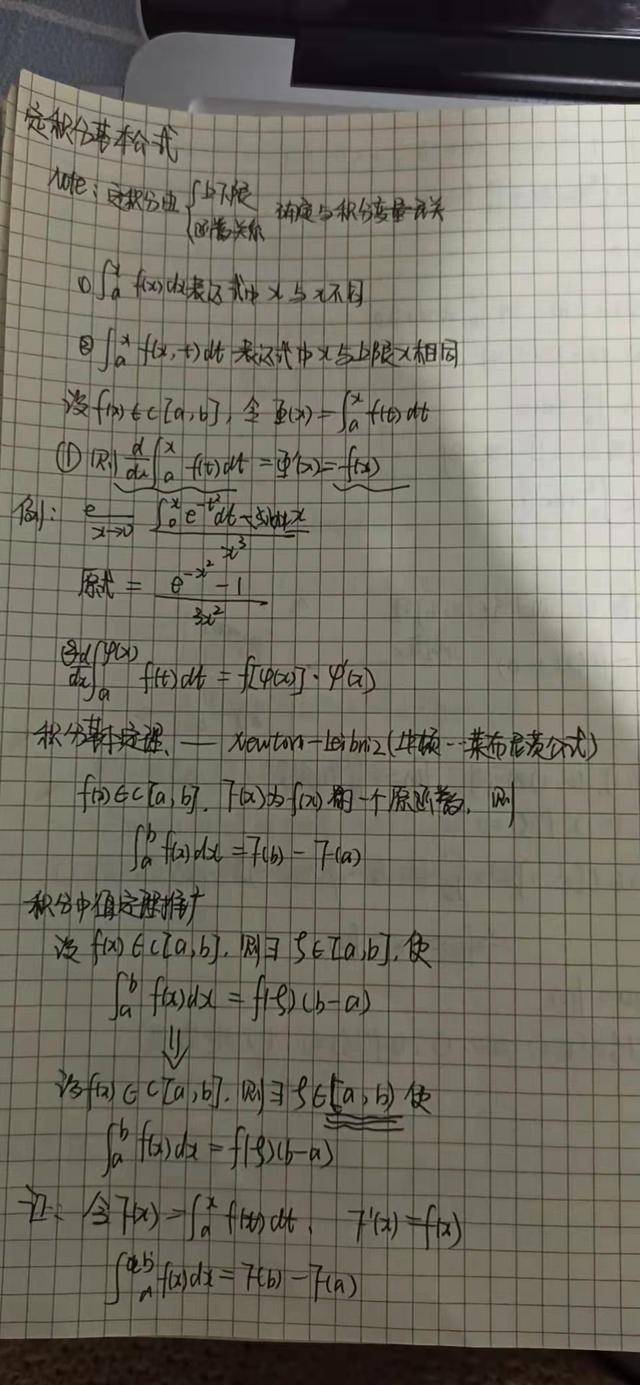 定积分基本公式
Note: 定积分由 { 上下限 函数关系 确定与积分变量无关
① ∫ₐˣ f(x)dx 表达式中 x 与 x 不同
② ∫ₐˣ f(x,t)dt 表达式中 x 与上限 x 相同
设 f(x)∈C[a,b], 令 Φ(x)=∫ₐˣ f(t)dt
(1) 则 d/dx ∫ₐˣ f(t)dt = Φ'(x) = f(x)
例: x→0 ∫₀ˣ e^(-t²)dt - x / x³
原式 = (e^(-x²) - 1) / 3x²
② d/dx ∫ₐ^φ(x) f(t)dt = f[φ(x)]·φ'(x)
积分基本定理 — Newton-Leibniz (牛顿--莱布尼茨公式)
f(x)∈C[a,b], F(x)为f(x)的一个原函数, 则
∫ₐᵇ f(x)dx = F(b) - F(a)
积分中值定理推广
设 f(x)∈C[a,b], 则∃ξ∈[a,b], 使
∫ₐᵇ f(x)dx = f(ξ)(b-a)
⇓
设f(x)∈C[a,b], 则∃ξ∈(a,b) 使
∫ₐᵇ f(x)dx = f(ξ)(b-a)
证: 令F(x)=∫ₐˣ f(t)dt, F'(x)=f(x)
∫ₐᵇ f(x)dx = F(b) - F(a)